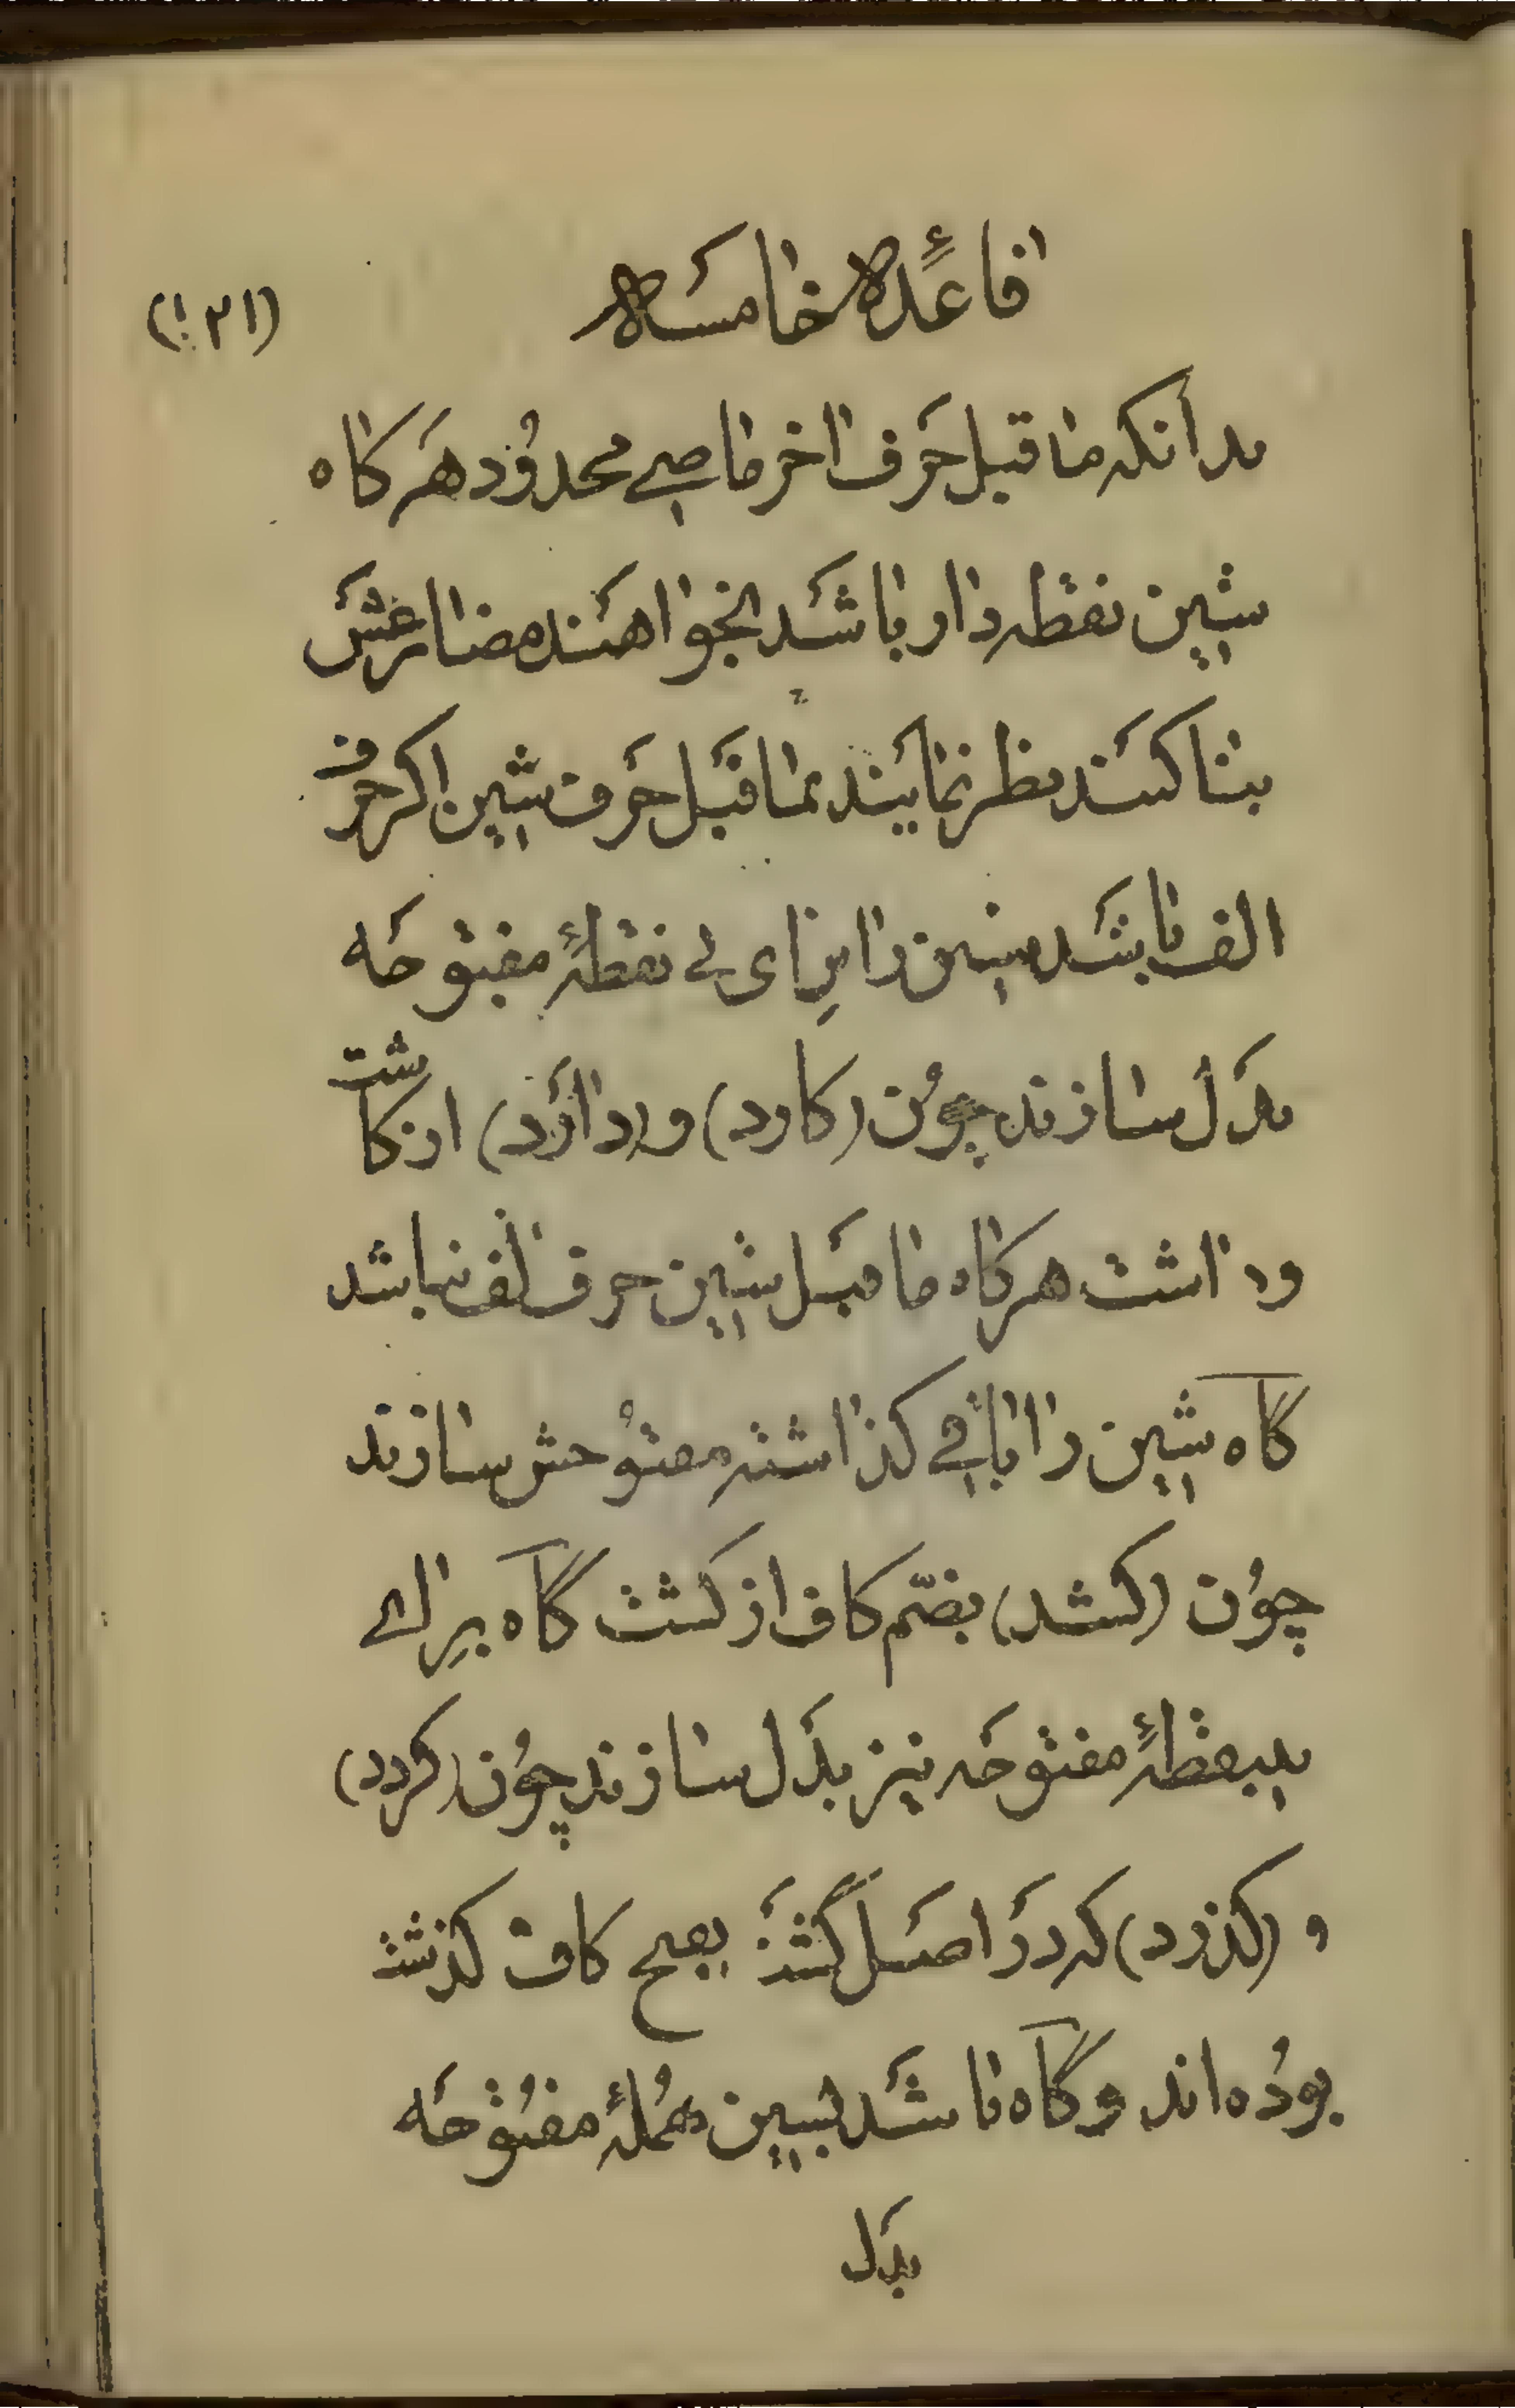 قاعدهٔ خامسه
(۱۳۱)
بدانکه ماقبل حَرف اخر ماضے محدوُد هَرکاه
شین نقطه دار باشَد بخواهَند مضارعشَ
بناکنَند نظر نمایَند بماقَبل حَرف شین اکر حرف
الف باشَد شین را برای بی نقطهٔ مفتوحَه
بدَل سازند چوُن (کارد) و (دارَد) از کاشت
و داشت هرکاه ماقبَل شین حرف الف نباشد
گاه شین را باقے کذاشته مفتوُحش سازند
چوُن (کشد) بضمّ کاف از کشت گاه براے
بیبقطهٔ مفتوحَه نیز بدَل سازند چوُن (کردد)
و (کذرد) که دَر اصَل گشَت بفتح کاف کذشت
بوُده اند و گاه باشَد بسین مُهملهٔ مفتوُحَه
بدَل